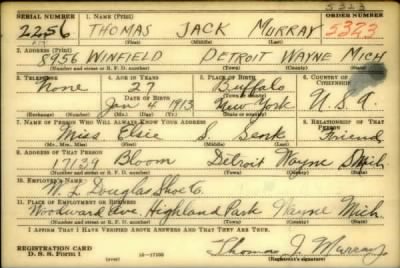 5323
SERIAL NUMBER 1. NAME (Print) ORDER NUMBER
2256 THOMAS JACK MURRAY 5323
(First) (Middle) (Last)
2. ADDRESS (Print)
8956 WINFIELD DETROIT WAYNE MICH
(Number and street or R. F. D. number) (Town) (County) (State)
3. TELEPHONE 4. AGE IN YEARS 5. PLACE OF BIRTH 6. COUNTRY OF CITIZENSHIP
None 27 Buffalo
DATE OF BIRTH (Town or county)
Jan 4 1913 New York U.S.A.
(Exchange) (Number) (Mo.) (Day) (Yr.) (State or country)
7. NAME OF PERSON WHO WILL ALWAYS KNOW YOUR ADDRESS 8. RELATIONSHIP OF THAT PERSON
Miss Elsie S. Senk Friend
(Mr., Mrs., Miss) (First) (Middle) (Last)
9. ADDRESS OF THAT PERSON
17139 Bloom Detroit Wayne Mich
(Number and street or R. F. D. number) (Town) (County) (State)
10. EMPLOYER'S NAME
W. L. Douglas Shoe Co.
11. PLACE OF EMPLOYMENT OR BUSINESS
Woodward Ave. Highland Park Wayne Mich.
(Number and street or R. F. D. number) (Town) (County) (State)
I AFFIRM THAT I HAVE VERIFIED ABOVE ANSWERS AND THAT THEY ARE TRUE.
REGISTRATION CARD
D. S. S. Form 1 (over) 16-17105 Thomas J. Murray
(Registrant's signature)